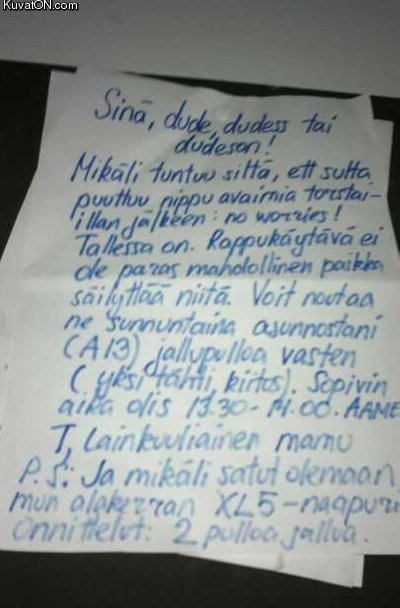 KuvatON.com
Sinä, dude, dudess tai
dudeson!
Mikäli tuntuu siltä, ett sulta
puuttuu nippu avaimia torstai-
illan jälkeen: no worries!
Tallessa on. Rappukäytävä ei
ole paras mahdollinen paikka
säilyttää niitä. Voit noutaa
ne sunnuntaina asunnostani
(A13) jallupulloa vasten
(yksi tähti, kiitos). Sopivin
aika olis 13.30-14.00. AAME
T, Lainkuuliainen mamu
P.S: Ja mikäli satut olemaan
mun alakerran XL5-naapuri
Onnittelut: 2 pulloa jallua.